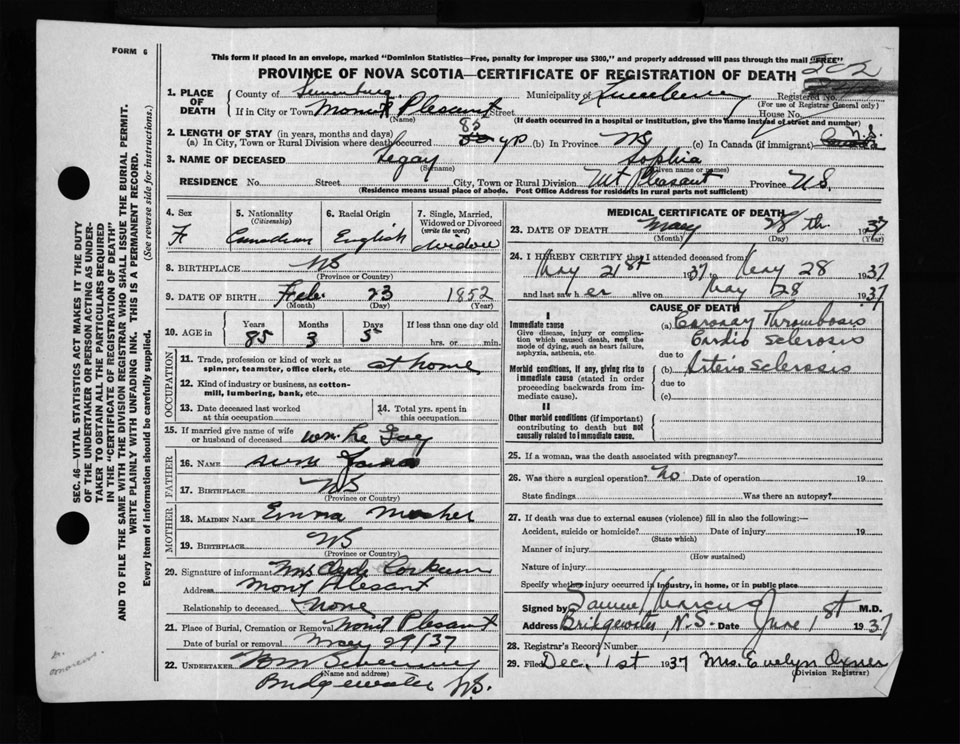 FORM 6
This form if placed in an envelope, marked "Dominion Statistics—Free, penalty for improper use $300," and properly addressed will pass through the mail "FREE"
PROVINCE OF NOVA SCOTIA—CERTIFICATE OF REGISTRATION OF DEATH 502
1. PLACE OF DEATH County of Lunenburg Municipality of Lunenburg Registered No.
(For use of Registrar General only)
If in City or Town Mount Plesant Street House No.
(Name) (If death occurred in a hospital or institution, give the name instead of street and number)
2. LENGTH OF STAY (in years, months and days)
(a) In City, Town or Rural Division where death occurred 85 yrs (b) In Province NS (c) In Canada (if immigrant) N.S.
3. NAME OF DECEASED Legay Sophia
(Surname) (Given name or names)
RESIDENCE No. Street City, Town or Rural Division Mt Pleasant Province N.S.
(Residence means usual place of abode. Post Office Address for residents in rural parts not sufficient)
4. Sex F
5. Nationality (Citizenship) Canadian
6. Racial Origin English
7. Single, Married, Widowed or Divorced (write the word) Widow
8. BIRTHPLACE NS
(Province or Country)
9. DATE OF BIRTH Feb 23 1852
(Month) (Day) (Year)
10. AGE in Years 85 Months 3 Days 5 If less than one day old hrs. or min.
OCCUPATION
11. Trade, profession or kind of work as spinner, teamster, office clerk, etc. at home
12. Kind of industry or business, as cotton-mill, lumbering, bank, etc.
13. Date deceased last worked at this occupation
14. Total yrs. spent in this occupation
15. If married give name of wife or husband of deceased Wm. Le Gay
FATHER
16. NAME
17. BIRTHPLACE NS
(Province or Country)
MOTHER
18. MAIDEN NAME Emma Mosher
19. BIRTHPLACE NS
(Province or Country)
20. Signature of informant Mrs Clyde Corkum
Address Mount Plesant
Relationship to deceased None
21. Place of Burial, Cremation or Removal Mount Plesant
Date of burial or removal May 29/37
22. UNDERTAKER
(Name and address)
Bridgewater NS.
MEDICAL CERTIFICATE OF DEATH
23. DATE OF DEATH May 28th 1937
(Month) (Day) (Year)
24. I HEREBY CERTIFY that I attended deceased from
May 21st 1937 May 28 1937
and last saw h er alive on May 28 1937
CAUSE OF DEATH
I
Immediate cause
Give disease, injury or complication which caused death, not the mode of dying, such as heart failure, asphyxia, asthenia, etc.
(a) Coronary Thrombosis
Cardio Sclerosis
due to
Morbid conditions, if any, giving rise to immediate cause (stated in order proceeding backwards from immediate cause).
(b) Arterio Sclerosis
due to
(c)
II
Other morbid conditions (if important) contributing to death but not causally related to immediate cause.
25. If a woman, was the death associated with pregnancy?
26. Was there a surgical operation? No Date of operation 19
State findings Was there an autopsy?
27. If death was due to external causes (violence) fill in also the following:—
Accident, suicide or homicide? Date of injury 19
(State which)
Manner of injury
(How sustained)
Nature of injury
Specify whether injury occurred in industry, in home, or in public place
Signed by Samuel Marcus M.D.
Address Bridgewater, N.S. Date June 1st 1937
28. Registrar's Record Number
29. Filed Dec. 1st 1937 Mrs. Evelyn Oxner
(Division Registrar)
SEC. 46—VITAL STATISTICS ACT MAKES IT THE DUTY
OF THE UNDERTAKER OR PERSON ACTING AS UNDER-
TAKER TO OBTAIN ALL THE PARTICULARS REQUIRED
IN THE "CERTIFICATE OF REGISTRATION OF DEATH"
AND TO FILE THE SAME WITH THE DIVISION REGISTRAR WHO SHALL ISSUE THE BURIAL PERMIT.
WRITE PLAINLY WITH UNFADING INK. THIS IS A PERMANENT RECORD.
Every item of information should be carefully supplied. (See reverse side for instructions.)